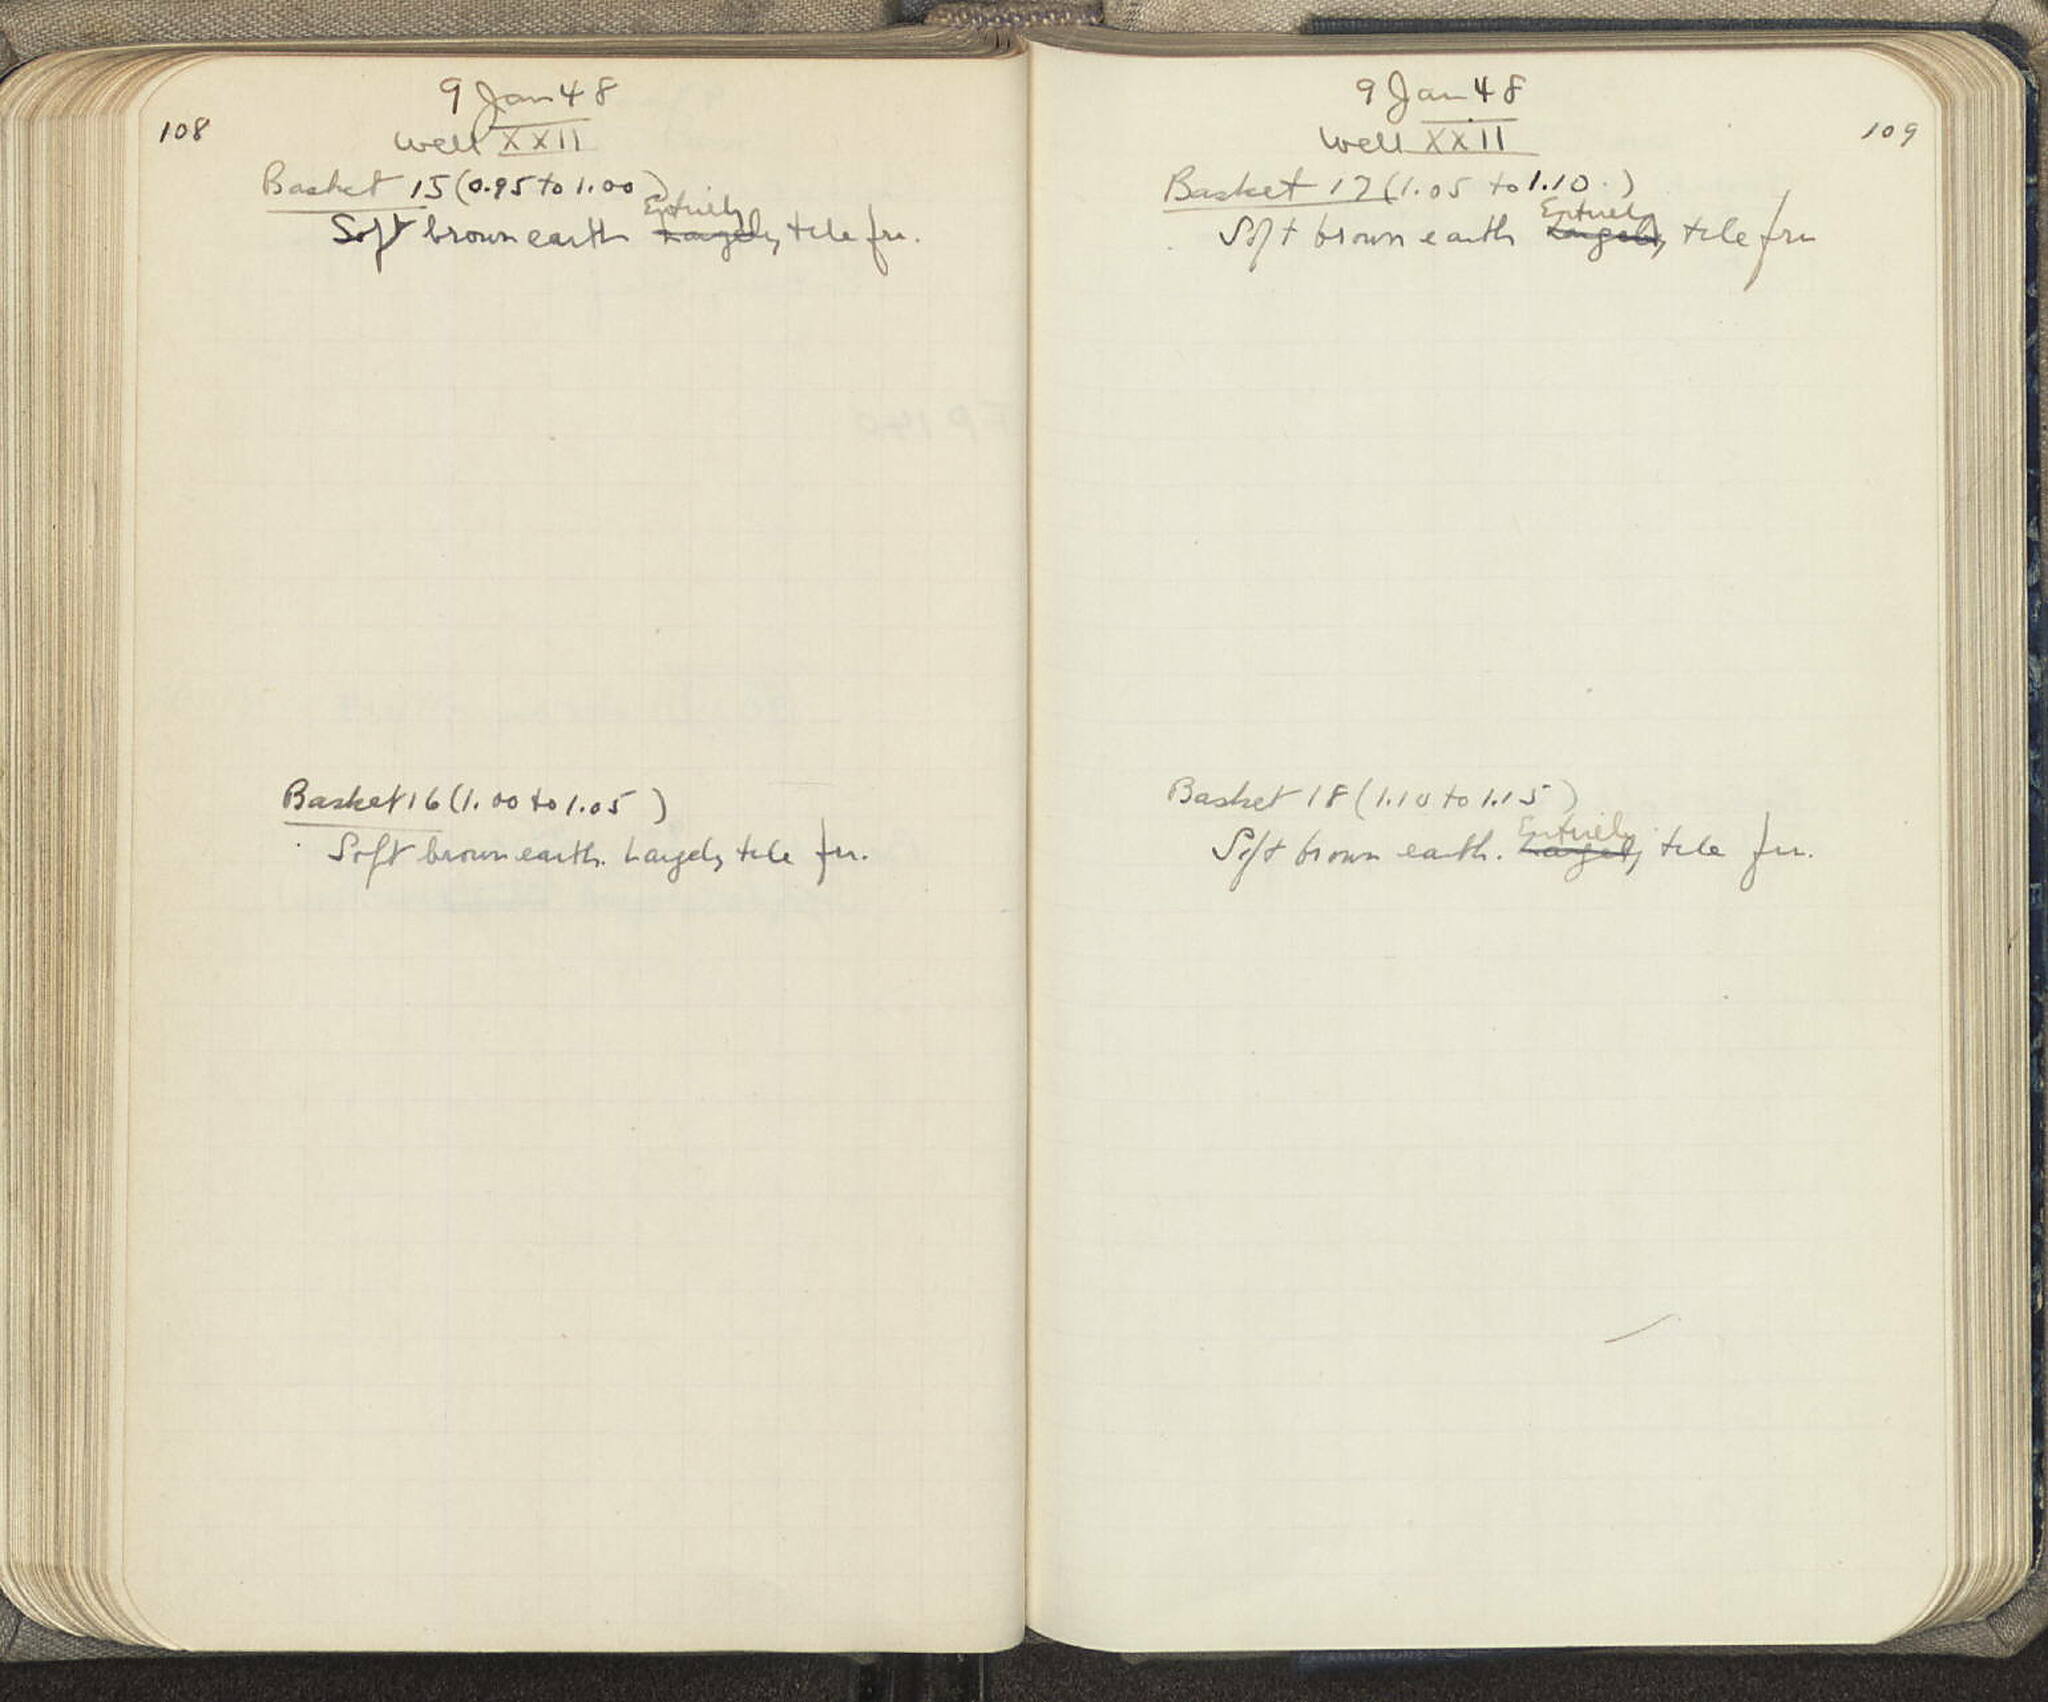 108
9 Jan 48
Well XXII
Basket 15 (0.95 to 1.00)
Entirely
Soft brown earth Largely tile fr.
Basket 16 (1.00 to 1.05)
Soft brown earth. Largely tile fr.
9 Jan 48
109
Well XXII
Basket 17 (1.05 to 1.10.)
Entirely
Soft brown earth Largely tile fr
Basket 18 (1.10 to 1.15)
Entirely
Soft brown earth. Largely tile fr.